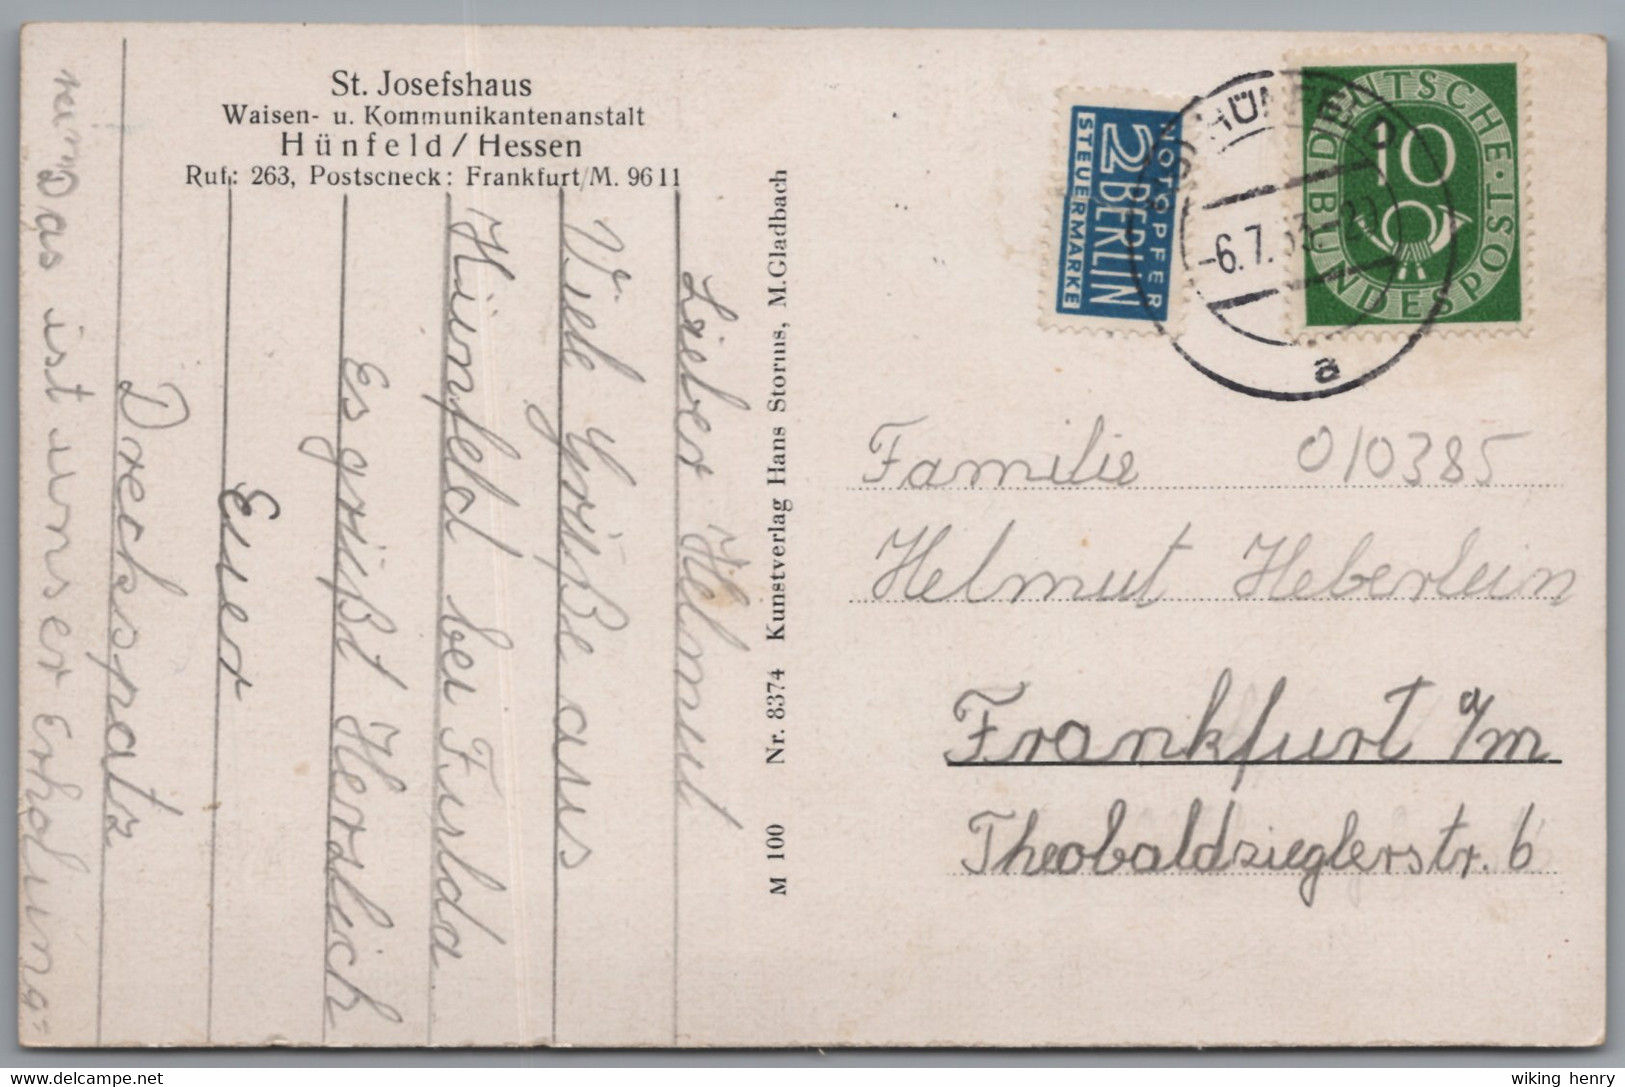 St. Josefshaus
Waisen- u. Kommunikantenanstalt
Hünfeld / Hessen
Ruf: 263, Postscheck: Frankfurt/M. 9611
Lieber Helmut
Viele Grüße aus
Hünfeld bei Fulda
Es grüßt Herzlich
Euer
Dreckspatz
Das ist unser Erholungs=
heim
M 100 Nr. 8374 Kunstverlag Hans Storms, M.Gladbach
NOTOPFER
2 BERLIN
STEUERMARKE
HÜNFELD
-6.7.53.-20
a
DEUTSCHE BUNDESPOST
10
010385
Familie
Helmut Heberlein
Frankfurt a/m
Theobaldzieglerstr. 6
wiking henry